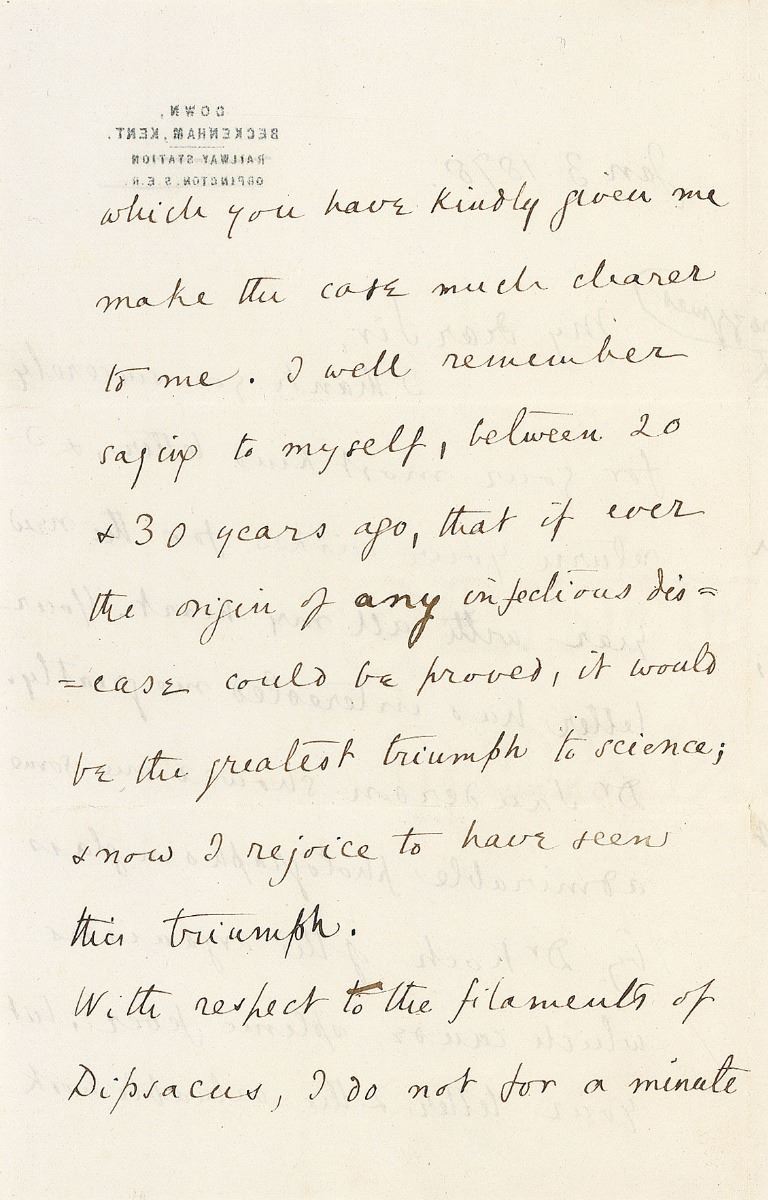 DOWN,
BECKENHAM, KENT.
RAILWAY STATION
ORPINGTON. S.E.R.
which you have kindly given me
make the case much clearer
to me. I well remember
saying to myself, between 20
& 30 years ago, that if ever
the origin of any infectious dis=
=ease could be proved, it would
be the greatest triumph to science;
& now I rejoice to have seen
this triumph.
With respect to the filaments of
Dipsacus, I do not for a minute